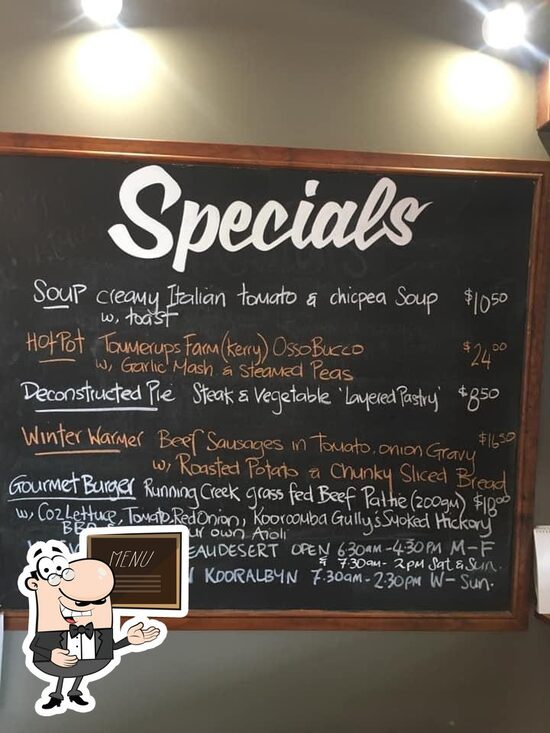 Specials
Soup creamy Italian tomato & chicpea Soup $10.50
w, toast
Hot Pot Toumerups Farm (Kerry) Osso Bucco $24.00
w, Garlic Mash & Steamed Peas
Deconstructed Pie Steak & Vegetable 'Layered Pastry' $8.50
Winter Warmer Beef Sausages in Tomato, onion Gravy $16.50
w, Roasted Potato & Chunky Sliced Bread
Gourmet Burger Running Creek grass fed Beef Pattie (200gm)
w, Coz Lettuce, Tomato, Red Onion, Kooroomba Gully's Smoked Hickory
BBQ our own Aioli
EAUDESERT OPEN 6:30am - 4:30PM M-F
& 7.30am - 2pm Sat & Sun.
KOORALBYN 7.30am - 2:30PM W- Sun.
MENU